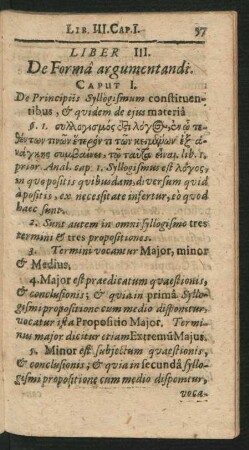 LIB. III. CAP. I. 57
LIBER III.
De Formâ argumentandi.
CAPUT I.
De Principiis Syllogismum constituen-
tibus, & quidem de ejus materiâ
§. 1. συλλογισμὸς ἐςὶ λόγ@, ἐν ᾧ τε-
θέντων τινῶν ἕτερόν τι τῶν κειμένων ἐξ ἀ-
νάγκης συμβαίνει, τῷ ταῦτα εἶναι. lib. 1.
prior. Anal. cap. 1. Syllogismus est λόγος,
in quo positis quibusdam, diversum quid
à positis, ex necessitate infertur, eo quod
hæc sunt.
2. Sunt autem in omni syllogismo tres
termini & tres propositiones.
3. Termini vocantur Major, minor
& Medius.
4. Major est prædicatum quæstionis,
& conclusionis; & quia in primâ Syllo-
gismi propositione cum medio disponitur,
vocatur ista Propositio Major. Termi-
nus major dicitur etiam Extremũ Majus.
5. Minor est subjectum quæstionis,
& conclusionis; & quia in secundâ syllo-
gismi propositione cum medio disponitur,
voca-